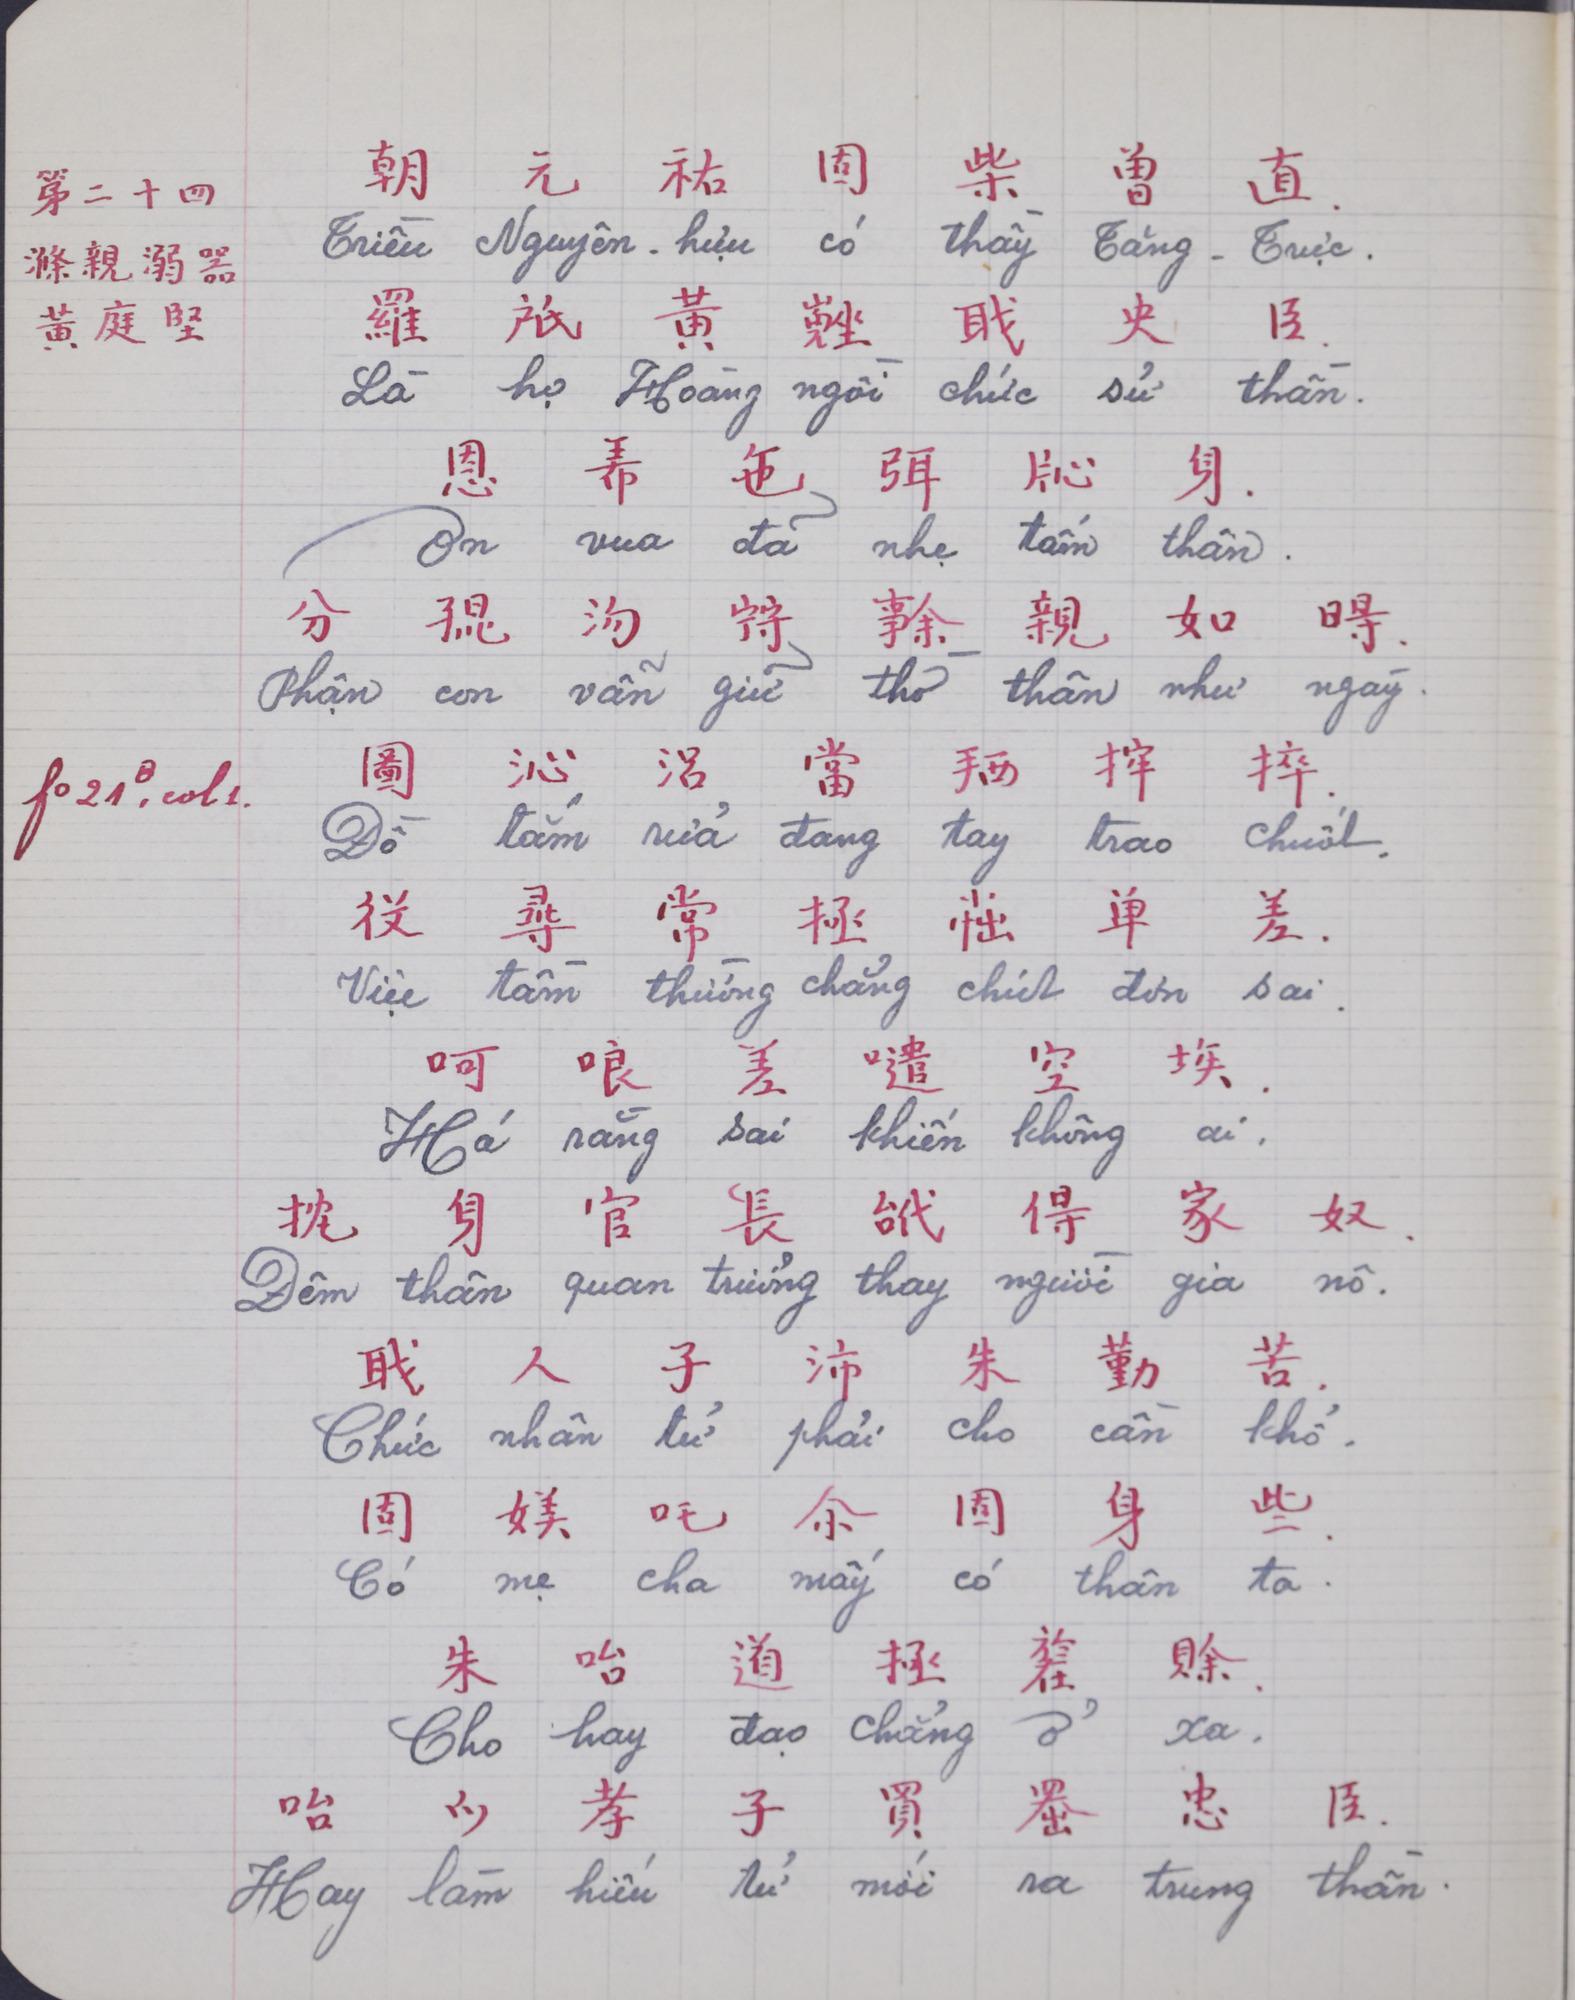 第二十四
滌親溺器
黃庭堅
朝 元 祐 固 柴 曾 直.
Triều Nguyên-hựu có thầy Tăng-Trực.
羅 𢩜 黃 𡾵 職 史 臣.
Là họ Hoàng ngồi chức sử thần.
恩 𤤰 㐌 弭 𬚸 身.
Ơn vua đã nhẹ tấm thân.
分 𡥵 沕 𡨹 𥙒 親 如 𣈜.
Phận con vẫn giữ thờ thân như ngày.
fo 21B, col 1.
圖 沁 𣳮 當 𢬣 㨋 捽.
Đồ tắm rửa đang tay trao chuốt.
役 尋 常 拯 𡭧 单 差.
Việc tầm thường chẳng chút đơn sai.
呵 哴 差 囈 空 埃.
Há rằng sai khiến không ai.
扰 身 官 長 𠊝 得 家 奴.
Đêm thân quan trưởng thay người gia nô.
職 人 子 沛 朱 勤 苦.
Chức nhân tử phải cho cần khổ.
固 媄 吒 余 固 身 些.
Có mẹ cha mấy có thân ta.
朱 咍 道 拯 𣄒 賒.
Cho hay đạo chẳng ở xa.
咍 𫜵 孝 子 買 𦋦 忠 臣.
Hay làm hiếu tử mới ra trung thần.